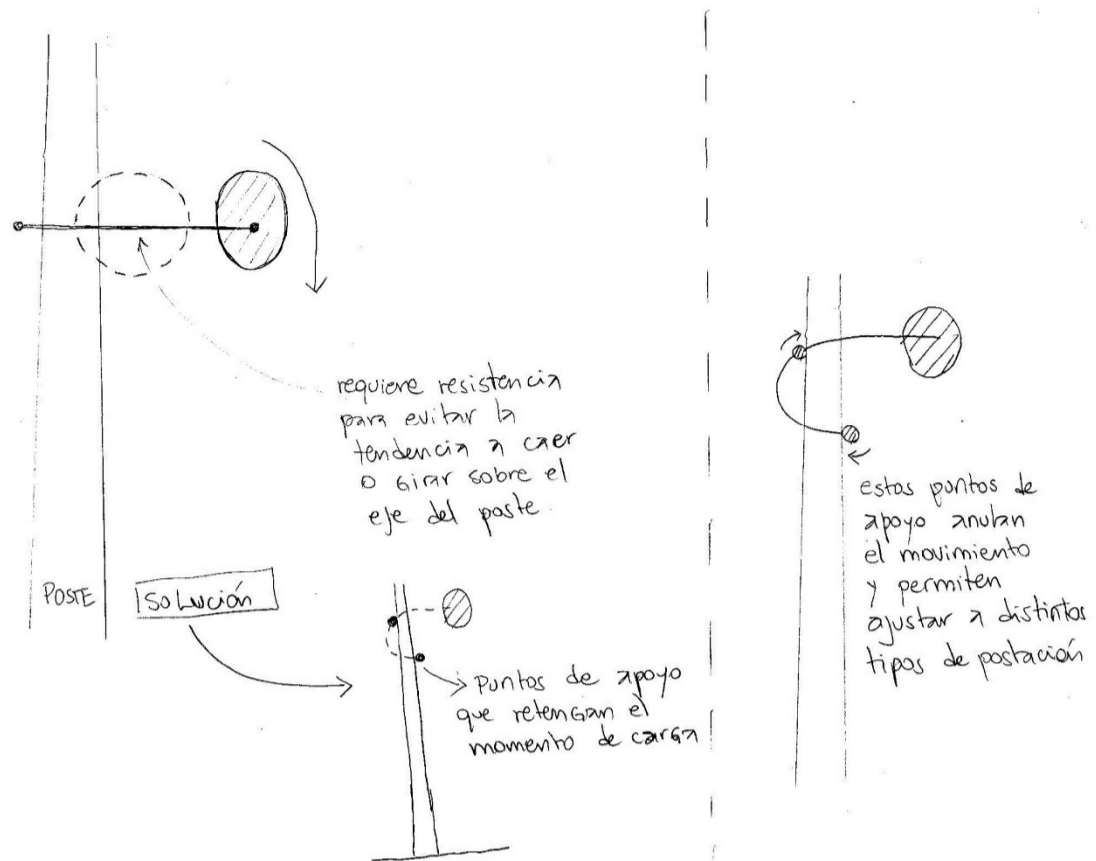 requiere resistencia
para evitar la
tendencia a caer
o girar sobre el
eje del poste.
POSTE
SOLUCIÓN
PUNTOS de apoyo
que retengan el
momento de carga
estos puntos de
apoyo anulan
el movimiento
y permiten
ajustar a distintos
tipos de postación